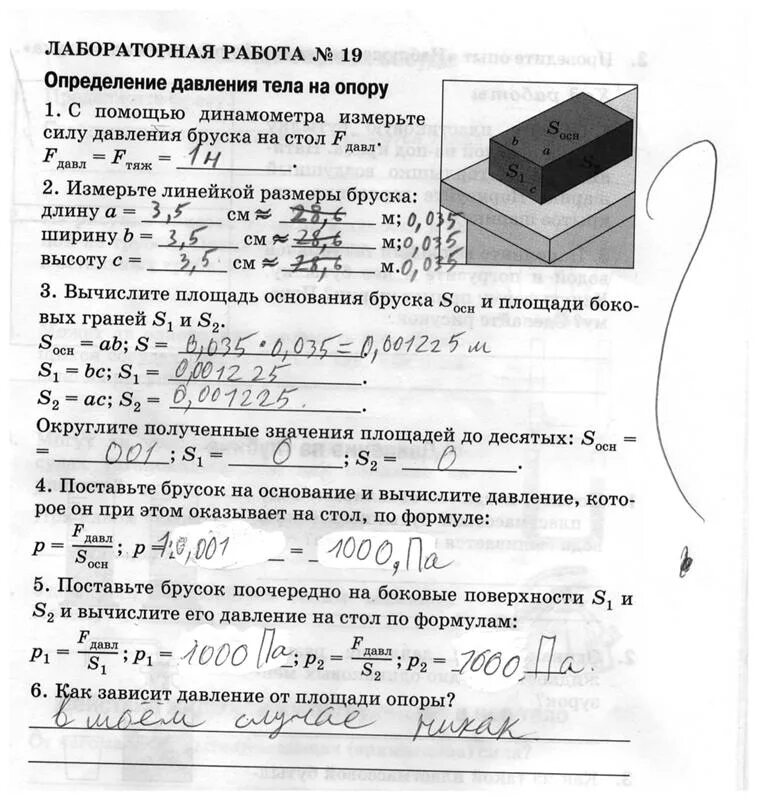 ЛАБОРАТОРНАЯ РАБОТА № 19
Определение давления тела на опору
1. С помощью динамометра измерьте
силу давления бруска на стол Fдавл.
Fдавл = Fтяж = 1н
b Sосн a S1 c
2. Измерьте линейкой размеры бруска:
длину a = 3,5 см ≈ 28,6 м; 0,035
ширину b = 3,5 см ≈ 28,6 м; 0,035
высоту c = 3,5 см ≈ 28,6 м. 0,035
3. Вычислите площадь основания бруска Sосн и площади боко-
вых граней S1 и S2.
Sосн = ab; S = 0,035 · 0,035 = 0,001225 м
S1 = bc; S1 = 0,001225.
S2 = ac; S2 = 0,001225.
Округлите полученные значения площадей до десятых: Sосн =
= 001 ; S1 = 0 ; S2 = 0.
4. Поставьте брусок на основание и вычислите давление, кото-
рое он при этом оказывает на стол, по формуле:
p = Fдавл/Sосн; p = 1:0,001 = 1000, Па
5. Поставьте брусок поочередно на боковые поверхности S1 и
S2 и вычислите его давление на стол по формулам:
p1 = Fдавл/S1; p1 = 1000 Па; p2 = Fдавл/S2; p2 = 1000 Па.
6. Как зависит давление от площади опоры?
в моём случае никак